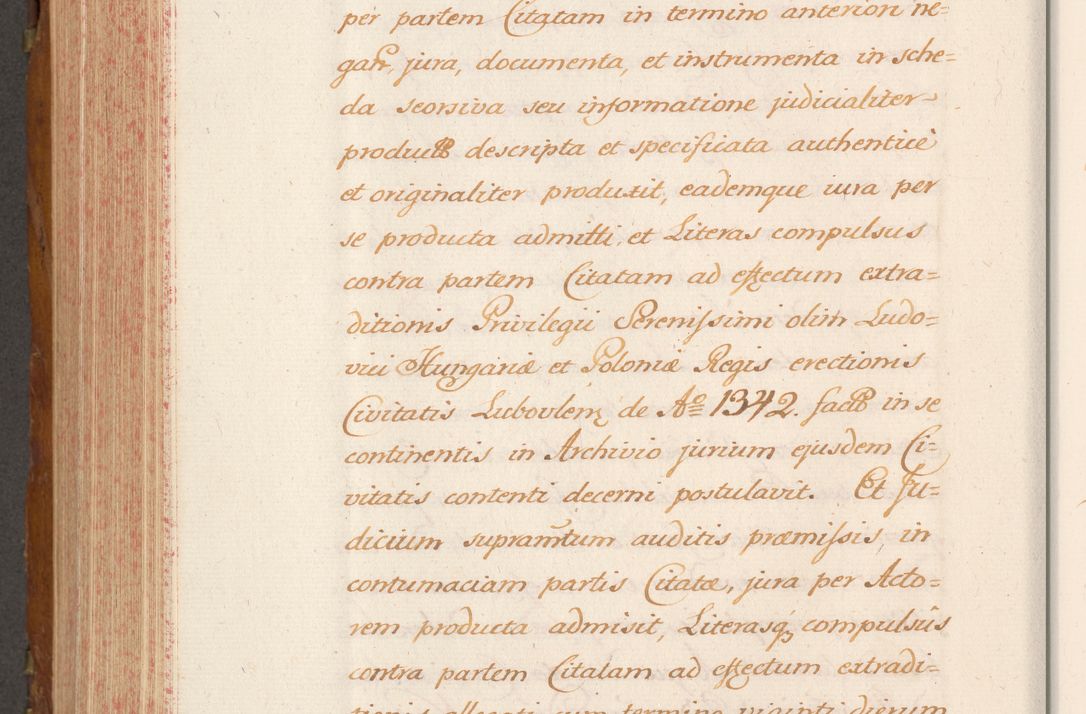 per partem Citatam in termino anteriori ne=
jura, documenta, et instrumenta in sche=
da seorsiva seu informatione judicialiter
descripta et specificata authenticè
et originaliter produxit, eademque iura per
se producta admitti, et Literas compulsus
contra partem Citatam ad effectum extra=
ditionis Privilegii Serenissimi olim Ludo=
vici Hungariæ et Poloniæ Regis erectionis
Civitatis de Aº 1342. in se
continentis in Archivio jurium ejusdem Ci=
vitatis contenti decerni postulavit. Et Ju=
dicium supramtum auditis præmissis, in
contumaciam partis Citatæ, jura per Acto=
rem producta admisit, Literasq; compulsûs
contra partem Citatam ad effectum extradi=
tionis allegati cum termino viginti dierum